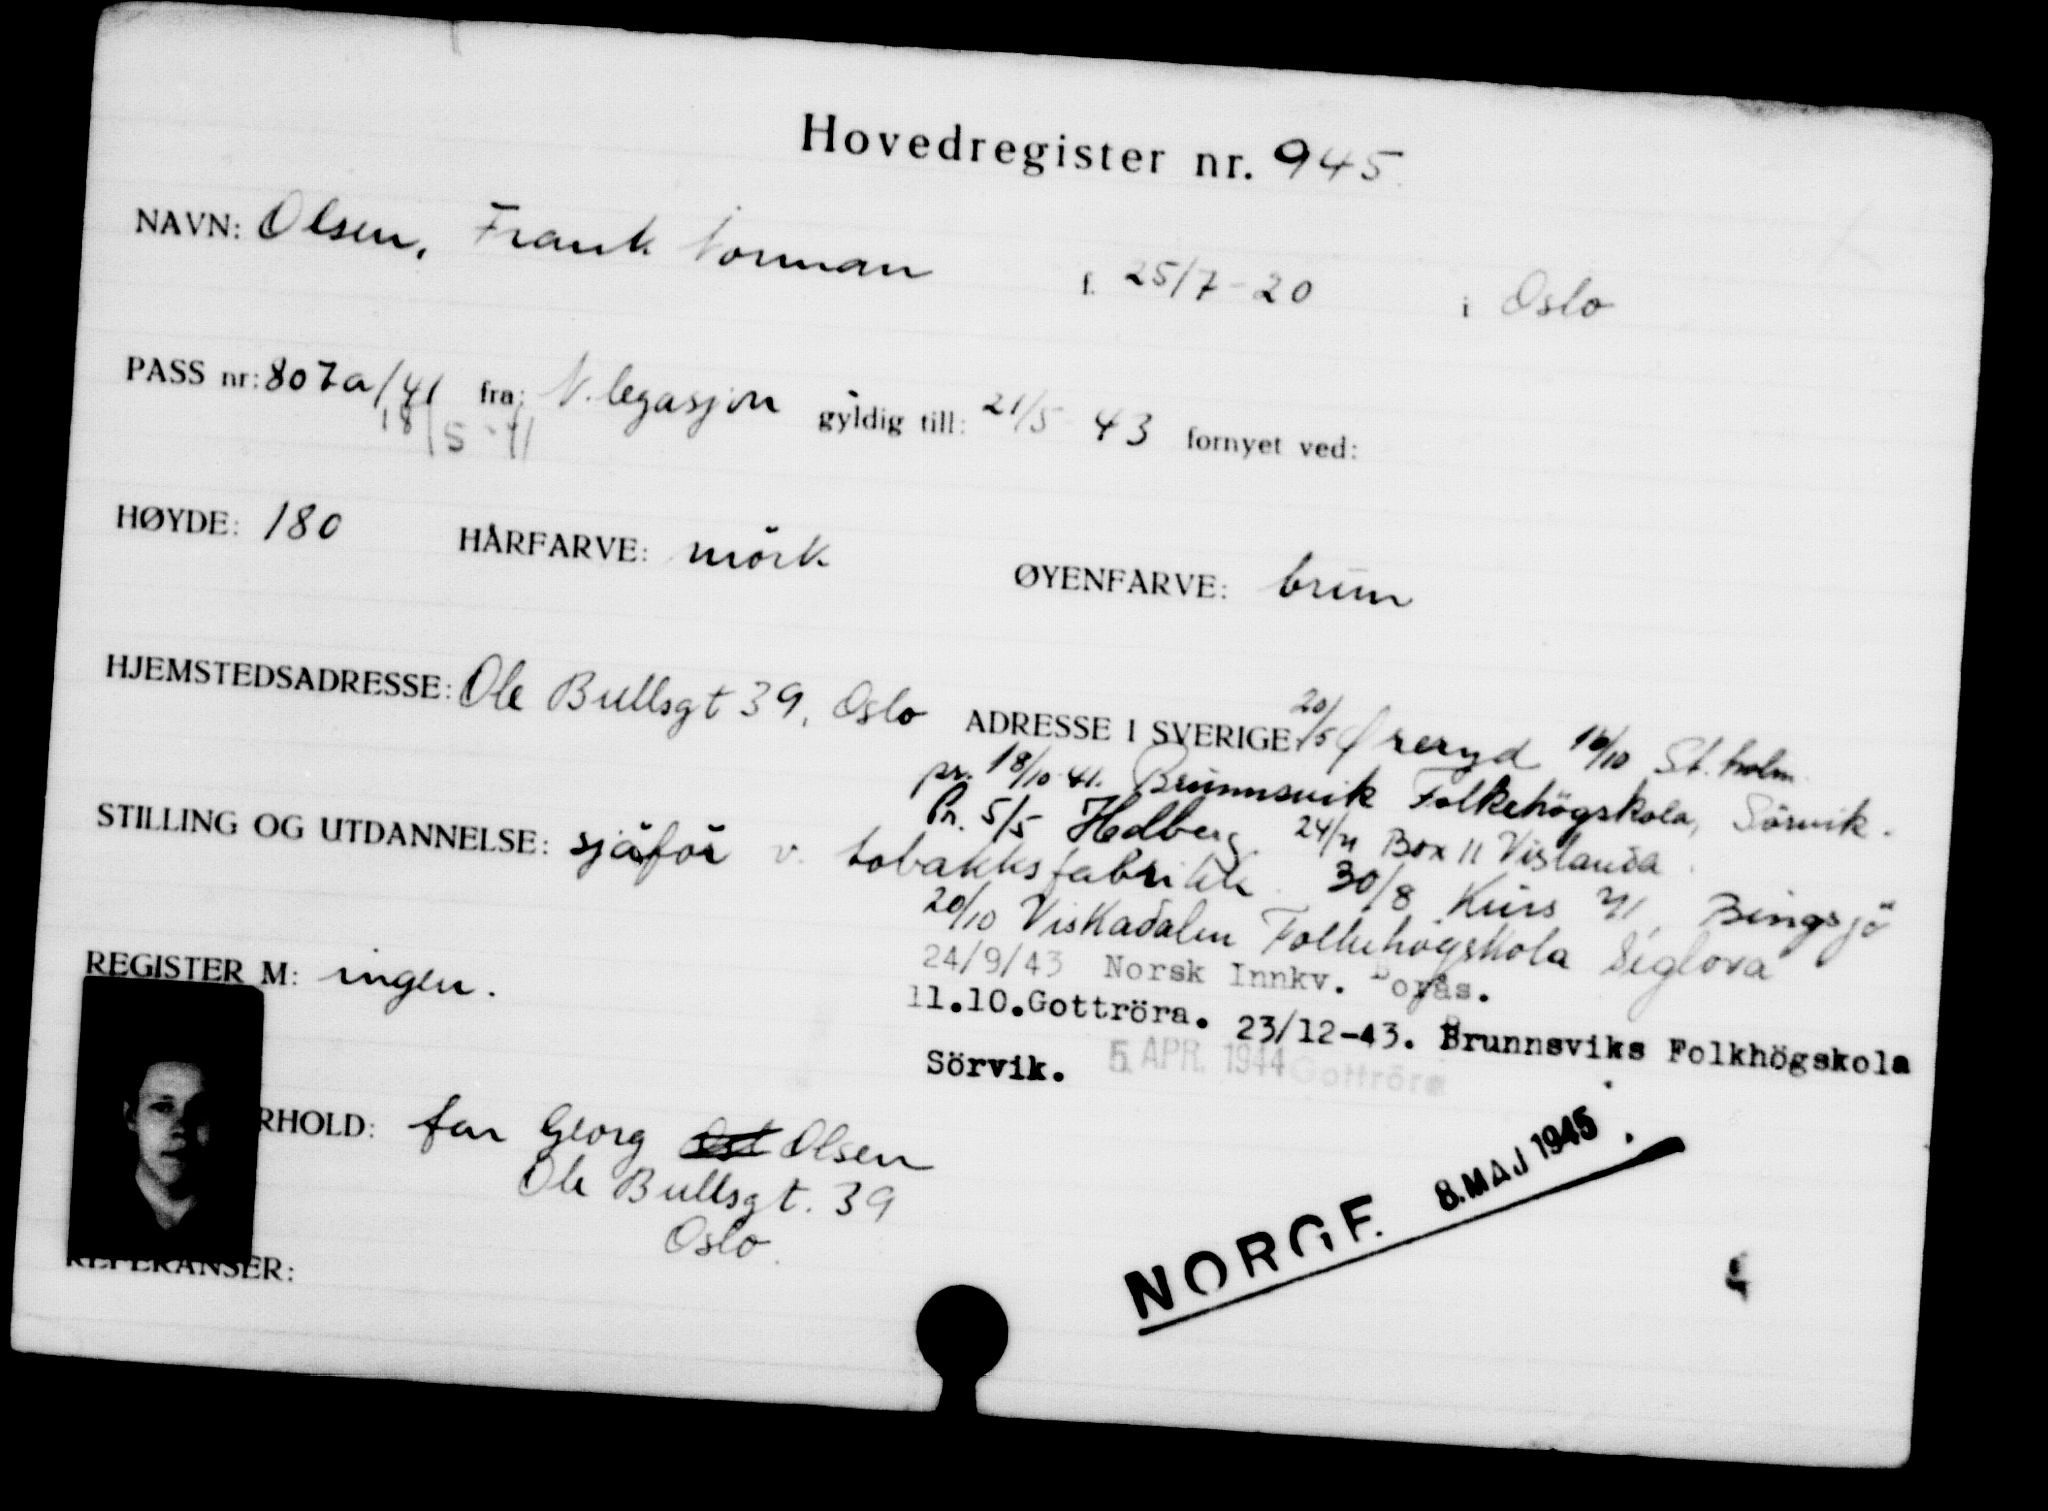 Hovedregister nr. 945
NAVN: Olsen, Frank Norman f. 25/7-20 i Oslo
PASS nr: 807a/41 fra: N. legasjon gyldig till: 21/5 43 fornyet ved:
18/5-41
HØYDE: 180 HÅRFARVE: mörk ØYENFARVE: brun
HJEMSTEDSADRESSE: Ole Bullsgt 39, Oslo ADRESSE I SVERIGE 20/5 Øreryd 16/10 St. holm
pr. 18/10 41. Brunnsvik Folkehögskola, Sörvik.
Pr. 5/5 Hedberg 24/11 Box 11 Vislanda.
STILLING OG UTDANNELSE: sjåför v. tobakksfabrikk. 30/8 Kurs VI, Bingsjö
20/10 Viskadalen Folkehögskola Seglora
24/9/43 Norsk Innkv. Borås.
REGISTER M: ingen.
11.10.Gottröra. 23/12-43. Brunnsviks Folkhögskola
Sörvik. 5. APR. 1944 Gottröra
RHOLD: far Georg Olsen
Ole Bullsgt. 39
Oslo.
NORGE 8. MAJ 1945
REFERANSER: